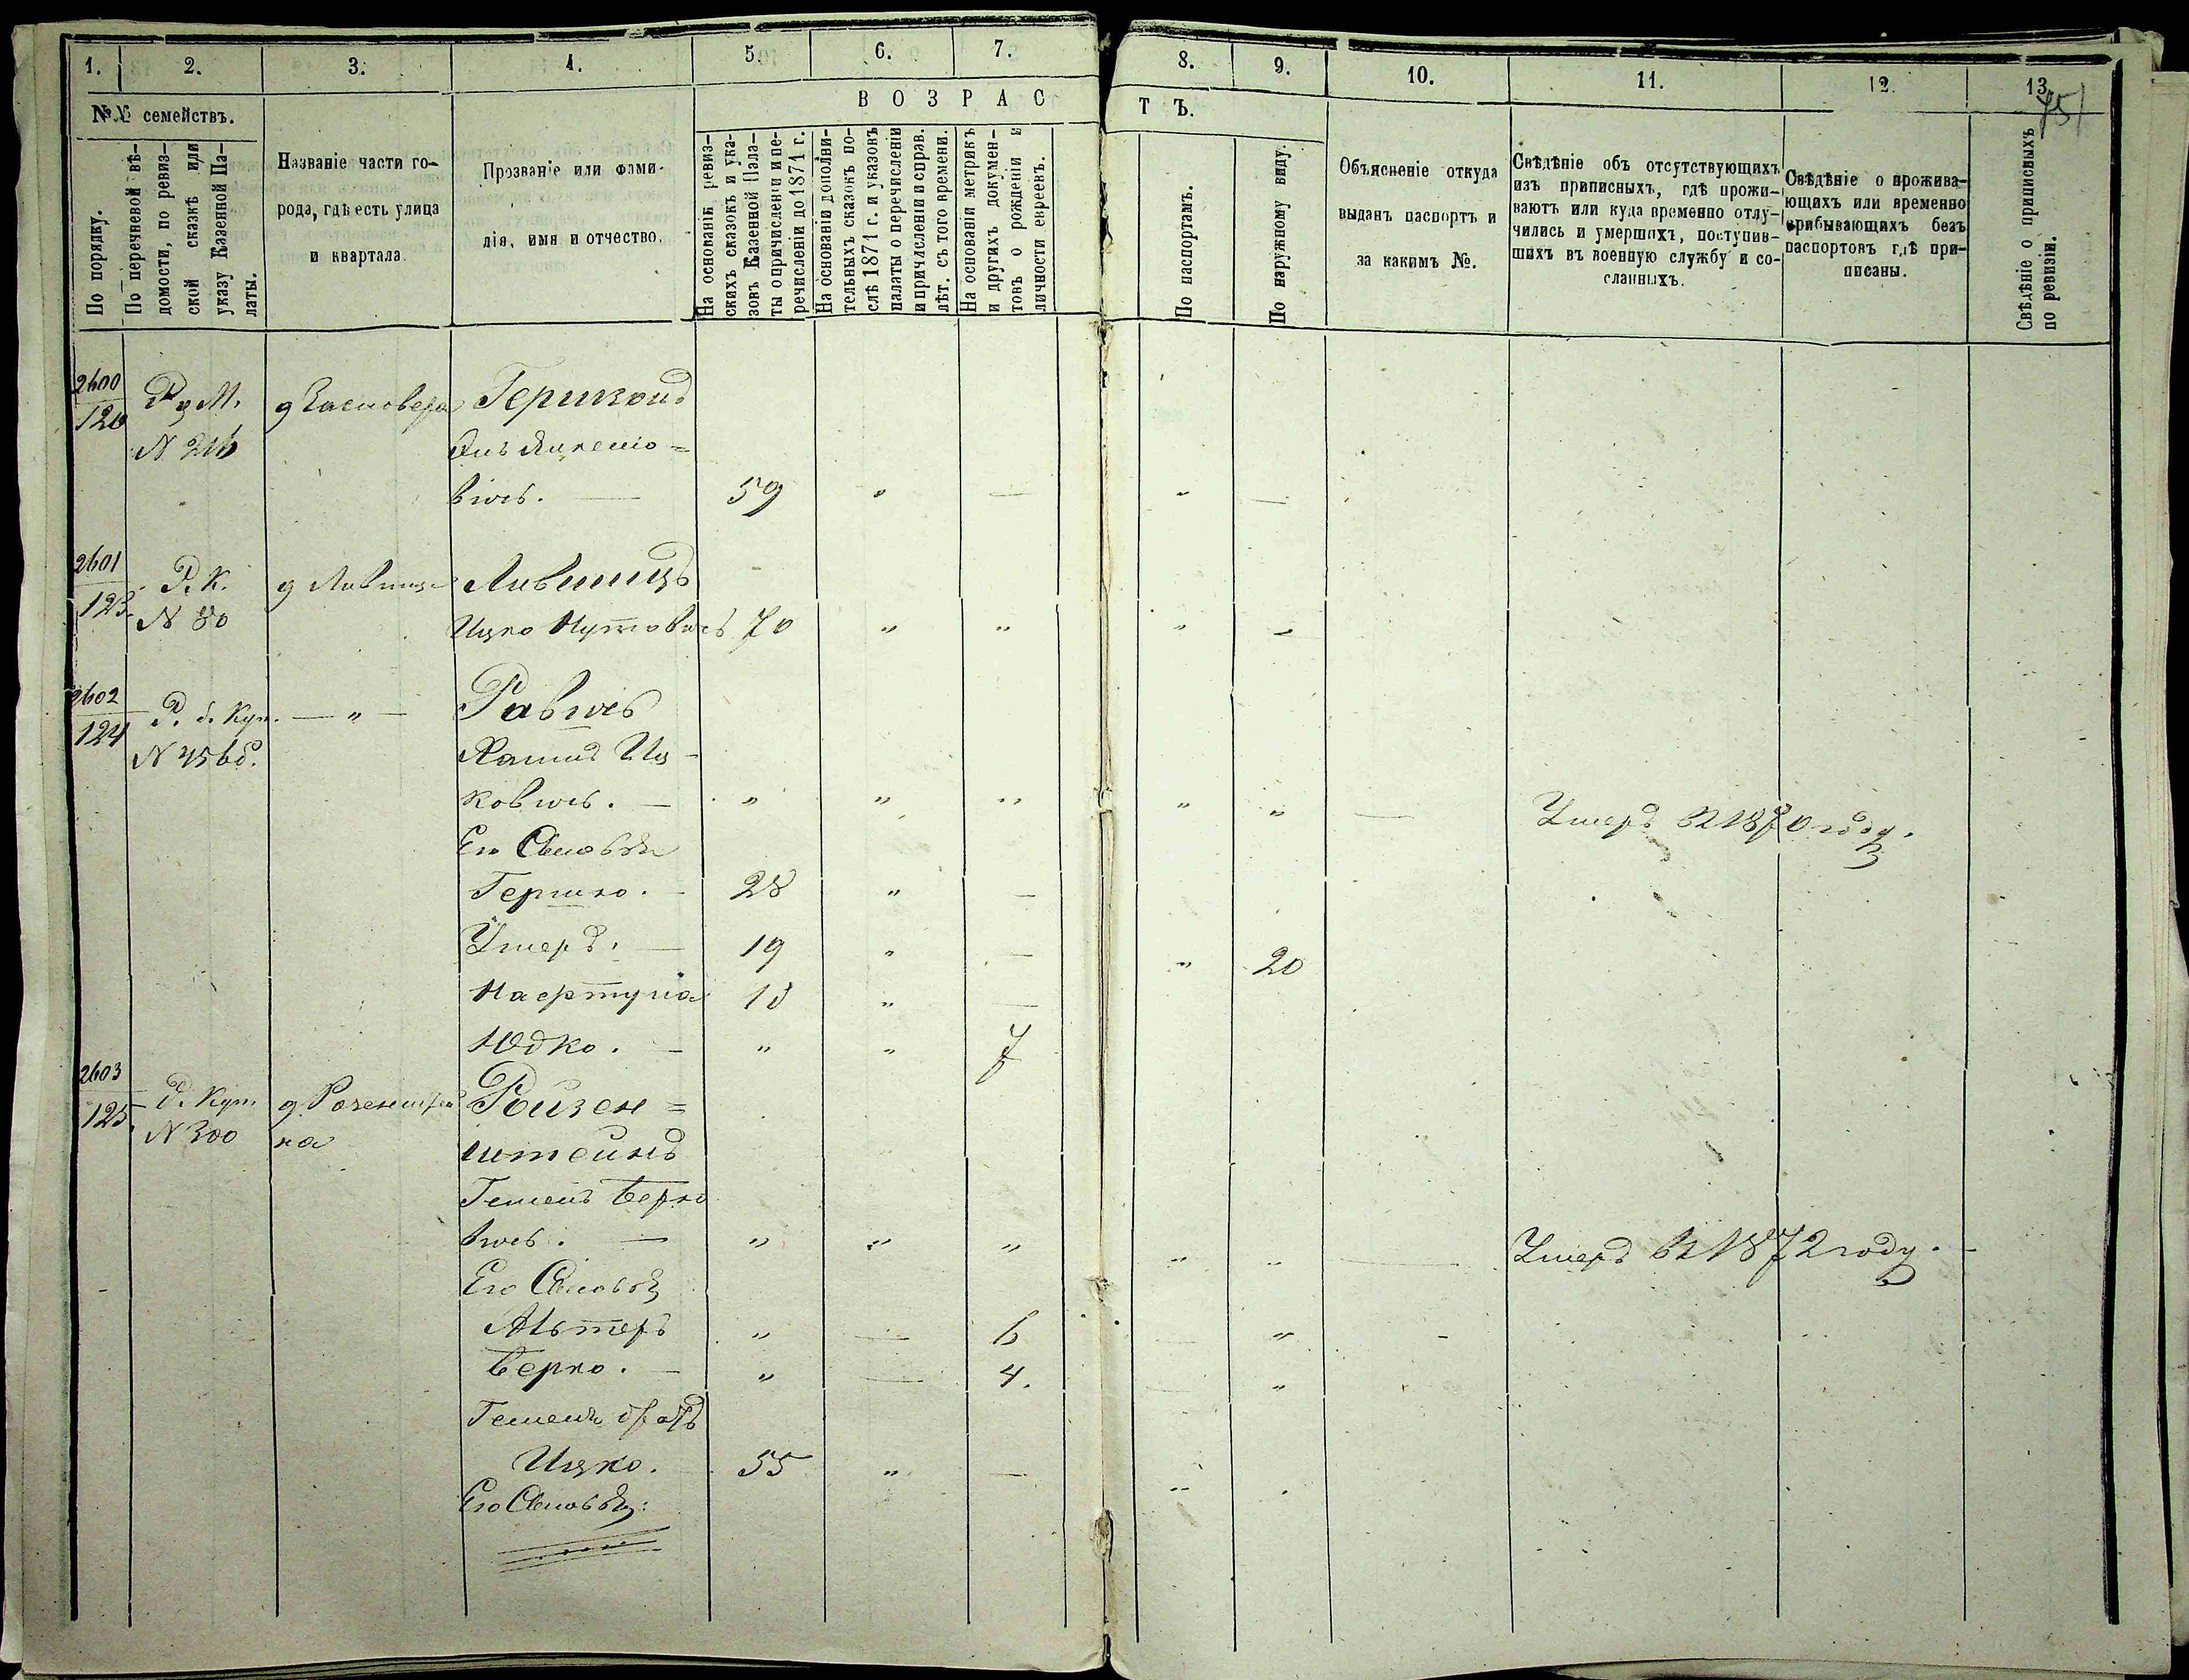 1. 2. 3. 4. 5. 6. 7. 8. 9. 10. 11. 12. 13.
751
№№ семействъ.
По порядку.
По перечневой вѣ-
домости, по ревиз-
ской сказкѣ или
указу Казенной Па-
латы.
Названіе части го-
рода, гдѣ есть улица
и квартала.
Прозваніе или фами-
лія, имя и отчество.
ВОЗРАСТЪ.
На основаніи ревиз-
скихъ сказокъ и ука-
зовъ Казенной Пала-
ты о причисленіи и пе-
речисленіи до 1871 г.
На основаніи дополни-
тельныхъ сказокъ по-
слѣ 1871 г. и указокъ
палаты о перечисленіи
и причисленіи и справ.
лѣт. съ того времени.
На основаніи метрикъ
и другихъ докумен-
товъ о рожденіи и
личности евреевъ.
По паспортамъ.
По наружному виду.
Объясненіе откуда
выданъ паспортъ и
за какимъ №.
Свѣдѣніе объ отсутствующихъ
изъ приписныхъ, гдѣ прожи-
ваютъ или куда временно отлу-
чились и умершихъ, поступив-
шихъ въ военную службу и со-
сланныхъ.
Свѣдѣніе о прожива-
ющихъ или временно
прибывающихъ безъ
паспортовъ гдѣ при-
писаны.
Свѣдѣніе о приписныхъ
по ревизіи.
2600 Р. М. Гершконъ
N 216
вичъ. — 59 " — " —
2601 Р. К. д Лившица Лившицъ
123 N 80
Ицко Нутовичъ 70 " " " "
2602 Р. д. Куп. — " — Равичъ
124 N 45
Хаимъ Иц-
ковичъ. — " " " " " — Умеръ въ 1870 году.
Его Сыновья
Гершко. — 28 " —
19 " — " 20
18 " —
Юдко. — " " 7
2603 д. Куп. Ройзен=
125 N 300 на штейнъ
Берко
вичъ. — " " " " " — Умеръ въ 1872 году. —
Его Сыновья
Альтеръ " — 6 — " -
Берко. — " — 4. — "
братъ
Ицко. 55 " — "
Его Сыновья: